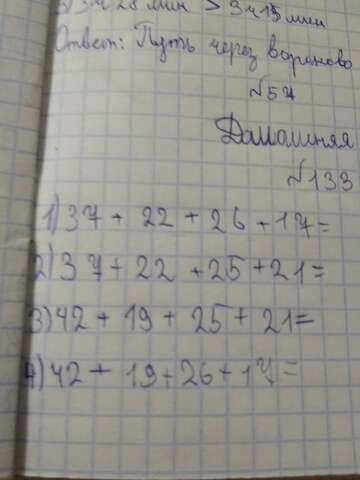 3ч 28 мин > 3ч 15 мин
Ответ: Путь через вороново
№57
Домашняя
№133
1) 37 + 22 + 26 + 17 =
2) 37 + 22 + 25 + 21 =
3) 42 + 19 + 25 + 21 =
4) 42 + 19 + 26 + 17 =